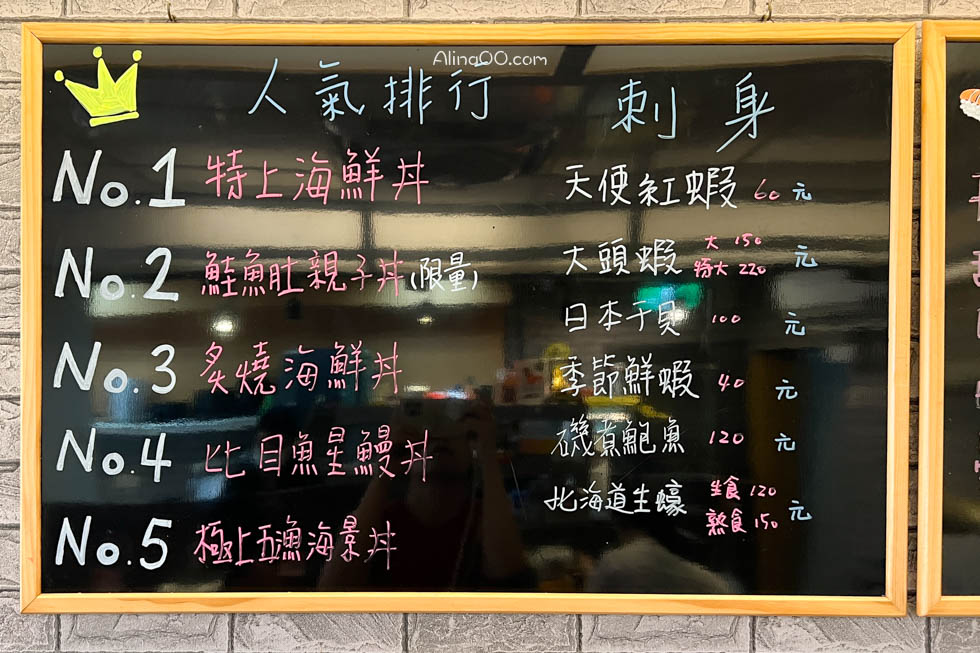 AlinaOO.com
人氣排行
No.1 特上海鮮丼
No.2 鮭魚肚親子丼(限量)
No.3 炙燒海鮮丼
No.4 比目魚星鰻丼
No.5 極上五漁海景丼
刺身
天使紅蝦 60元
大頭蝦 大 150 元
特大 220
日本干貝 100 元
季節鮮蝦 40 元
磯煮鮑魚 120 元
北海道生蠔 生食 120 元
熟食 150